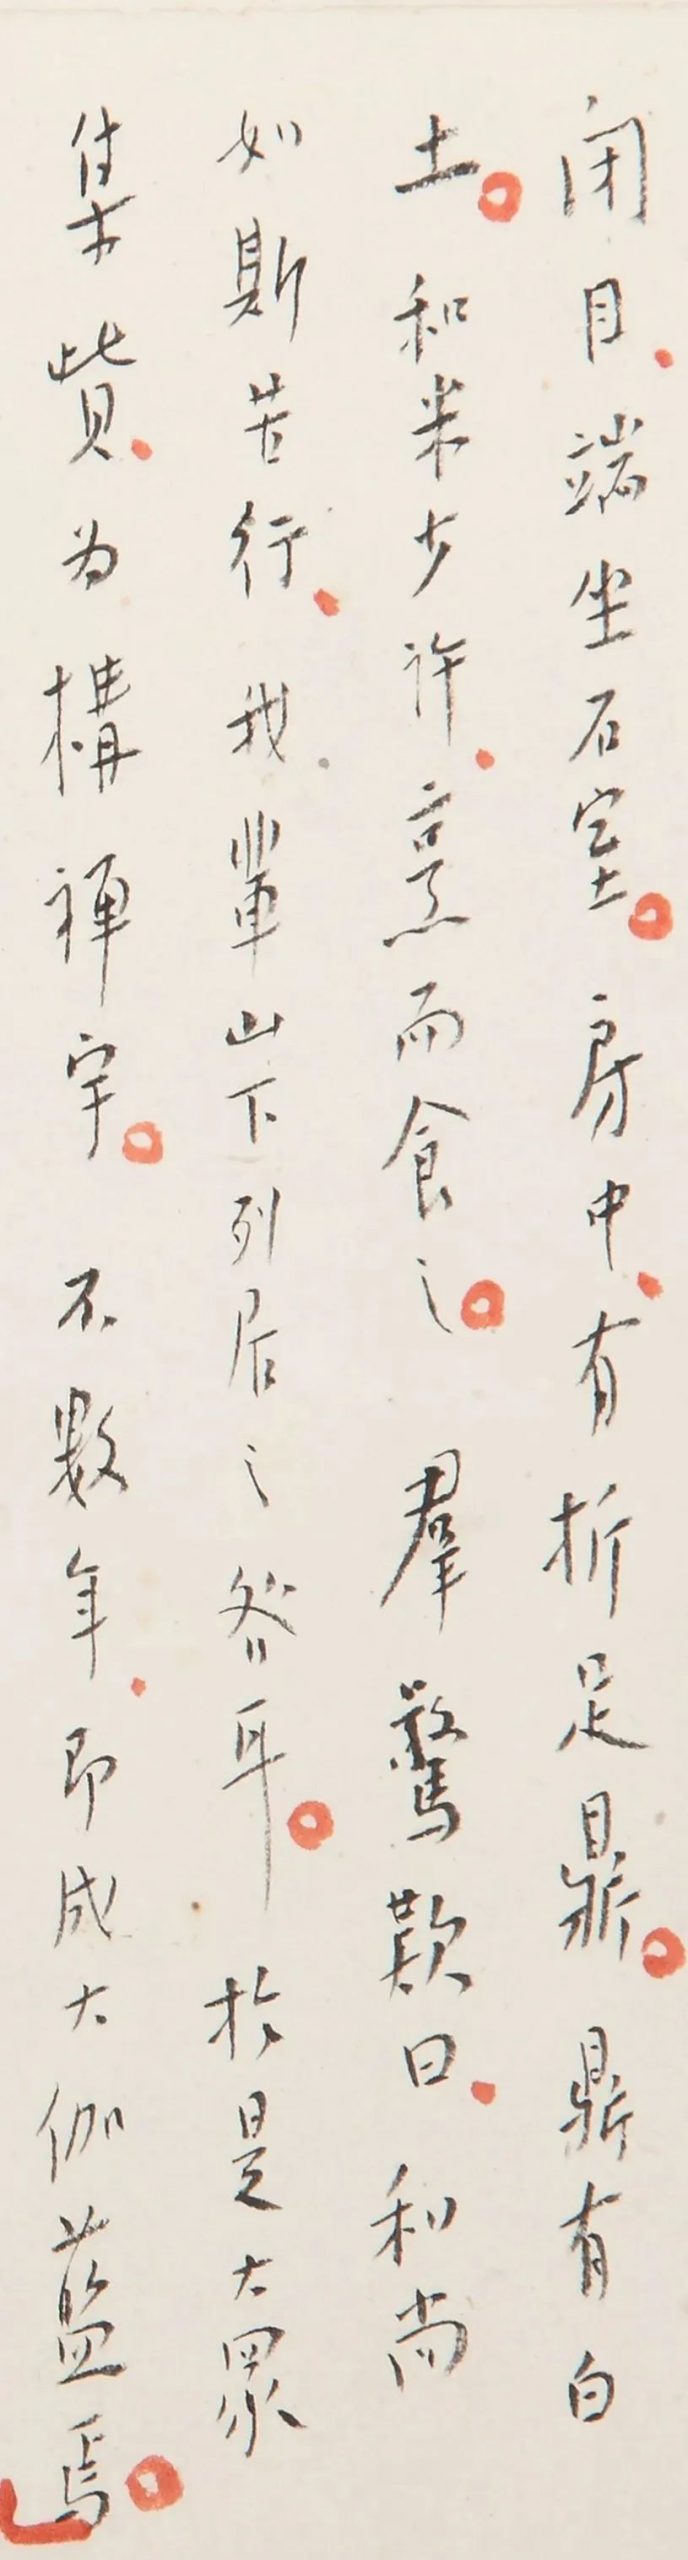 闭目端坐石室房中有折足鼎鼎有白
土和米少许烹而食之羣驚歎曰和尚
如斯苦行我輩山下列居之咎耳於是大眾
集貲为構禅宇不數年即成大伽藍焉